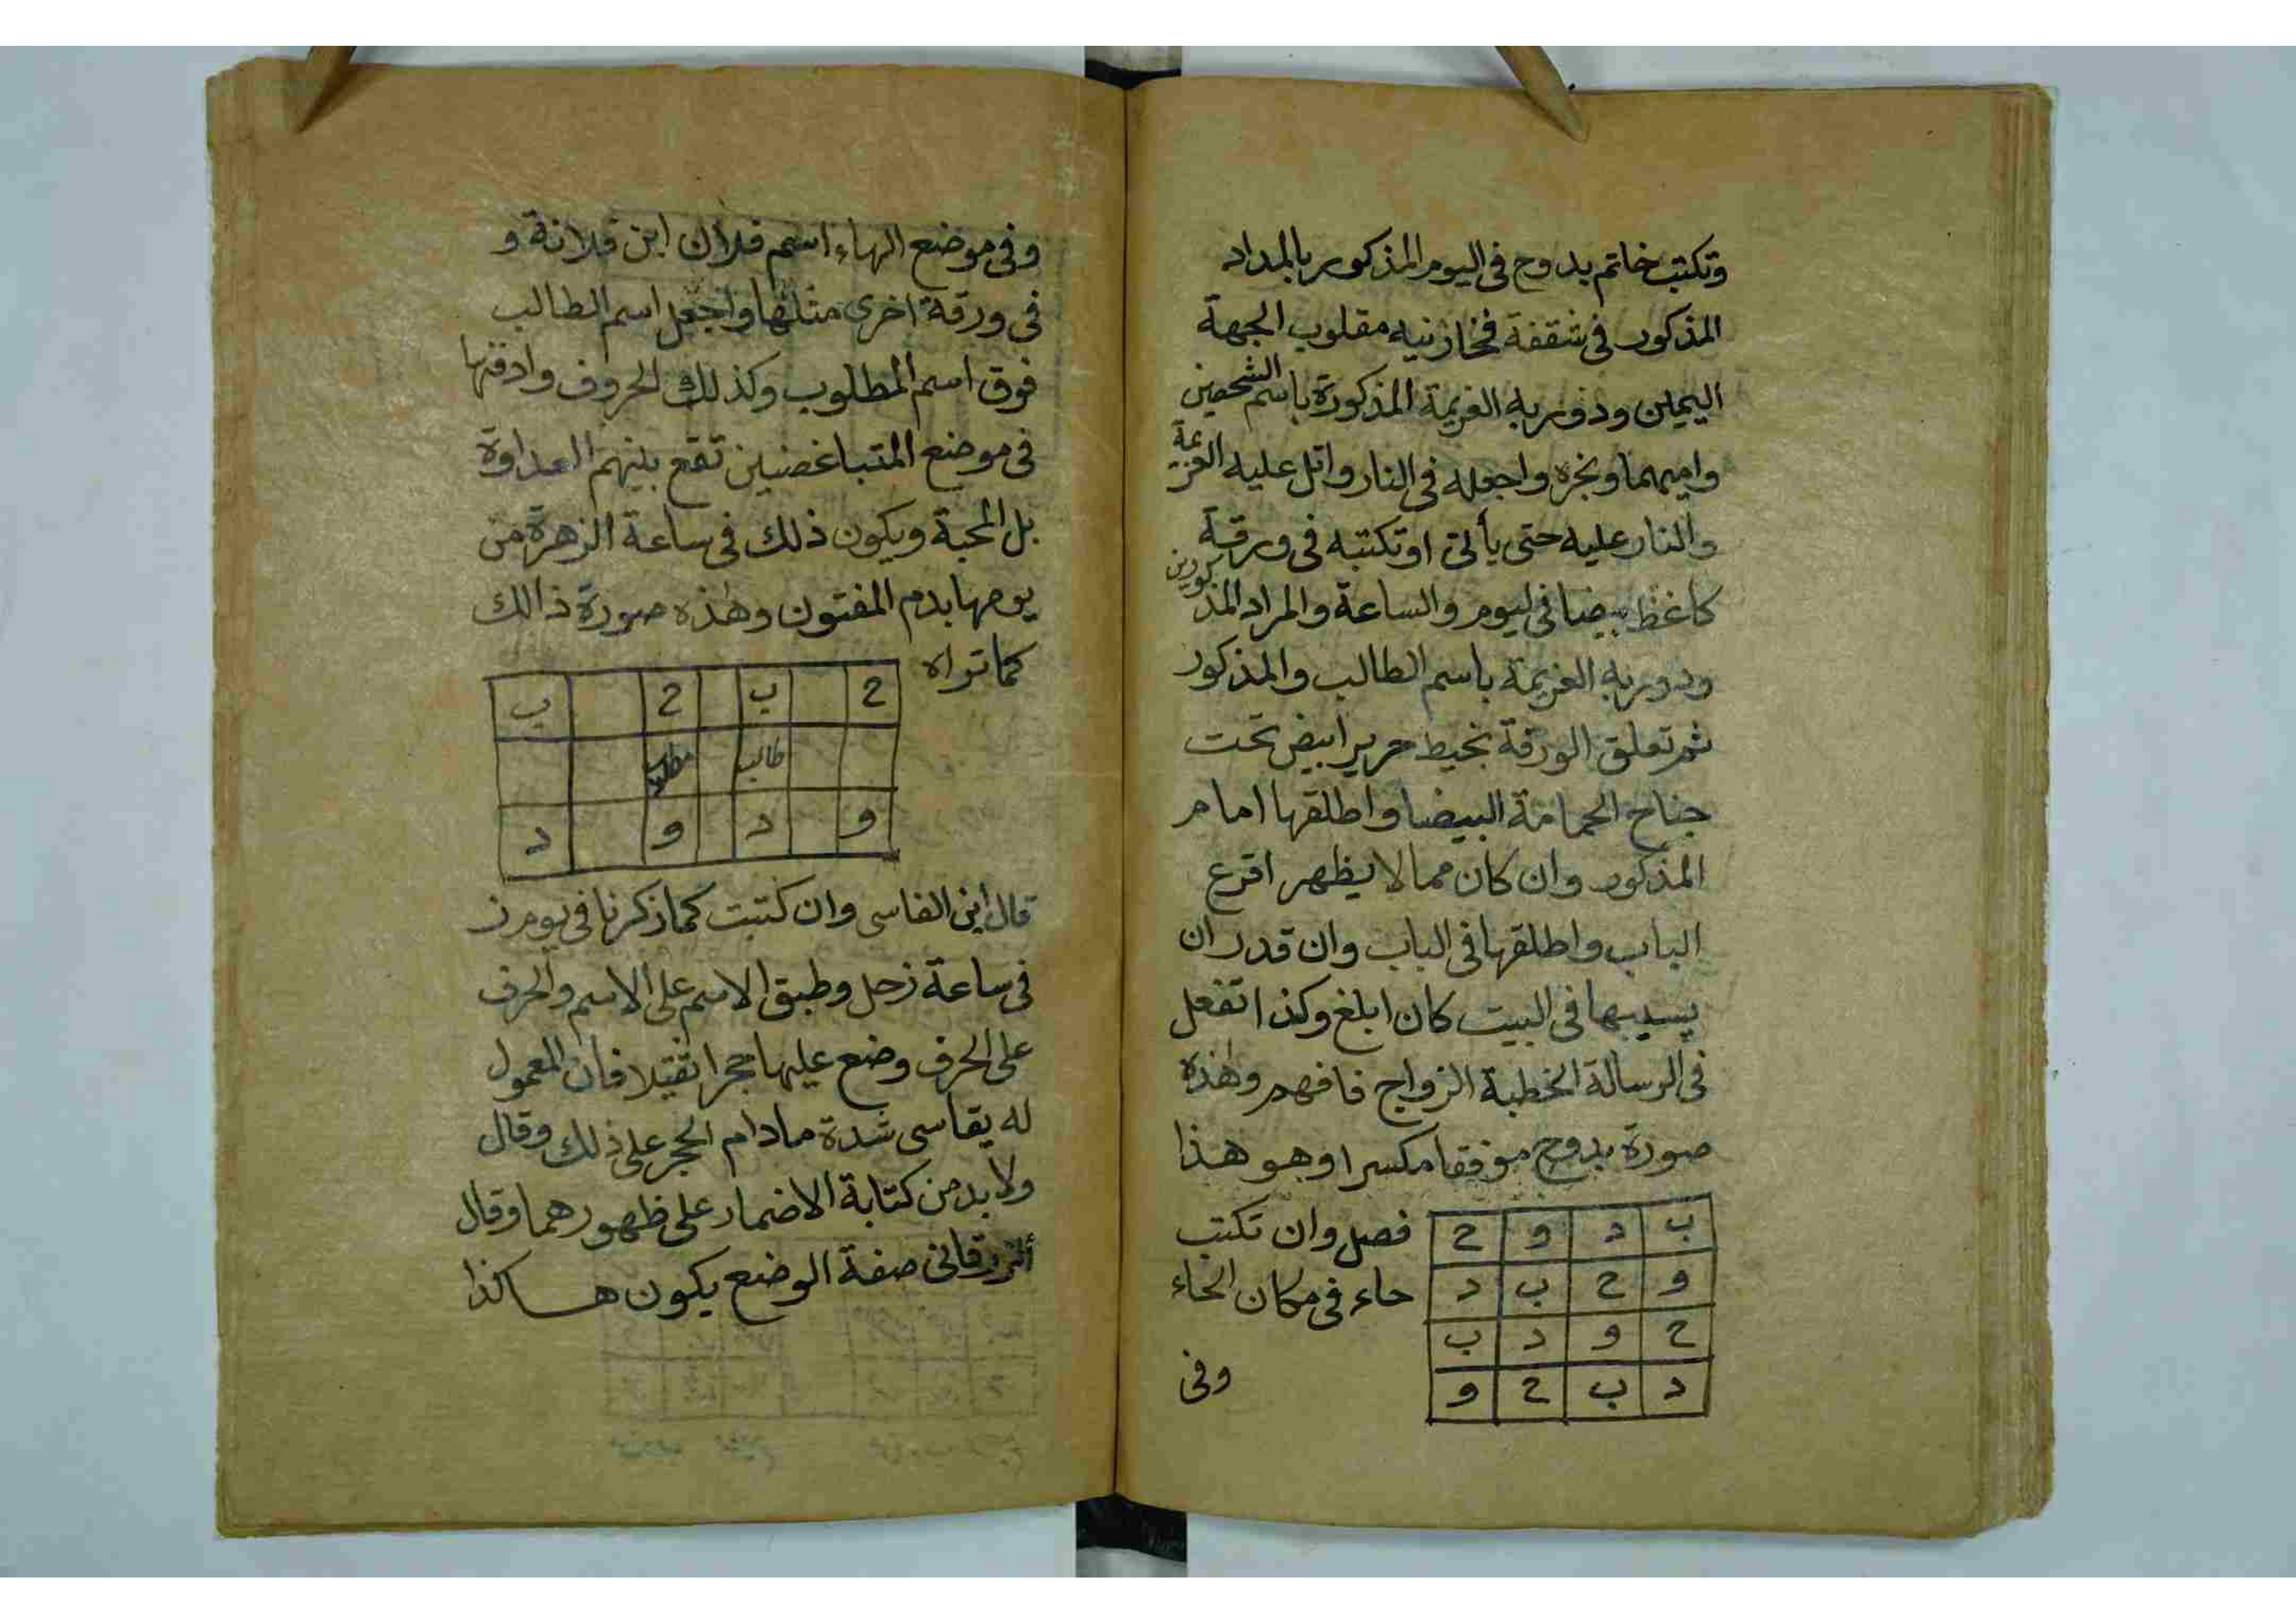 وتكتب خاتم بدوح فى اليوم المذكور بالمداد
المذكور فى شقفة فخار نيه مقلوب الجهة
اليمين ودور به العزيمة المذكورة باسم الشخصين
واميهما وبخره واجعله فى النار واتل عليه العزيمة
والنار عليه حتى يأتى او تكتبه فى ورقة
كاغظ بيضا فى ليوم والساعة والمراد المذكورين
ودور به العزيمة باسم الطالب والمذكور
ثم تعلق الورقة بخيط حرير ابيض تحت
جناح الحمامة البيضا واطلقها امام
المذكور وان كان مما لا يظهر اقرع
الباب واطلقها فى الباب وان قدر ان
يسيبها فى البيت كان ابلغ وكذا تفعل
فى الرسالة الخطبة الزواج فافهم وهذه
صورة بدوح موفقا مكسرا وهو هذا
ب د و ح
و ح ب د
ح و د ب
د ب ح و
فصل وان تكتب
حاء فى مكان الحاء
وفى
وفى موضع الهاء اسم فلان ابن فلانة و
فى ورقة اخرى مثلها واجعل اسم الطالب
فوق اسم المطلوب وكذلك الحروف وادفنها
فى موضع المتباغضين تقع بينهم العداوة
بل المحبة ويكون ذلك فى ساعة الزهرة من
يومها بدم المفتون وهذه صورة ذالك
كما تراه
ح ب ح ب
طالب مطلوب
و د و د
قال ابن الفاسى وان كتبت كما ذكرنا فى يوم ز
فى ساعة زحل وطبق الاسم على الاسم والحرف
على الحرف وضع عليها حجرا ثقيلا فان المعمول
له يقاسى شدة مادام الحجر على ذلك وقال
ولا بد من كتابة الاضمار على ظهورهما وقال
الزرقانى صفة الوضع يكون هاكذا